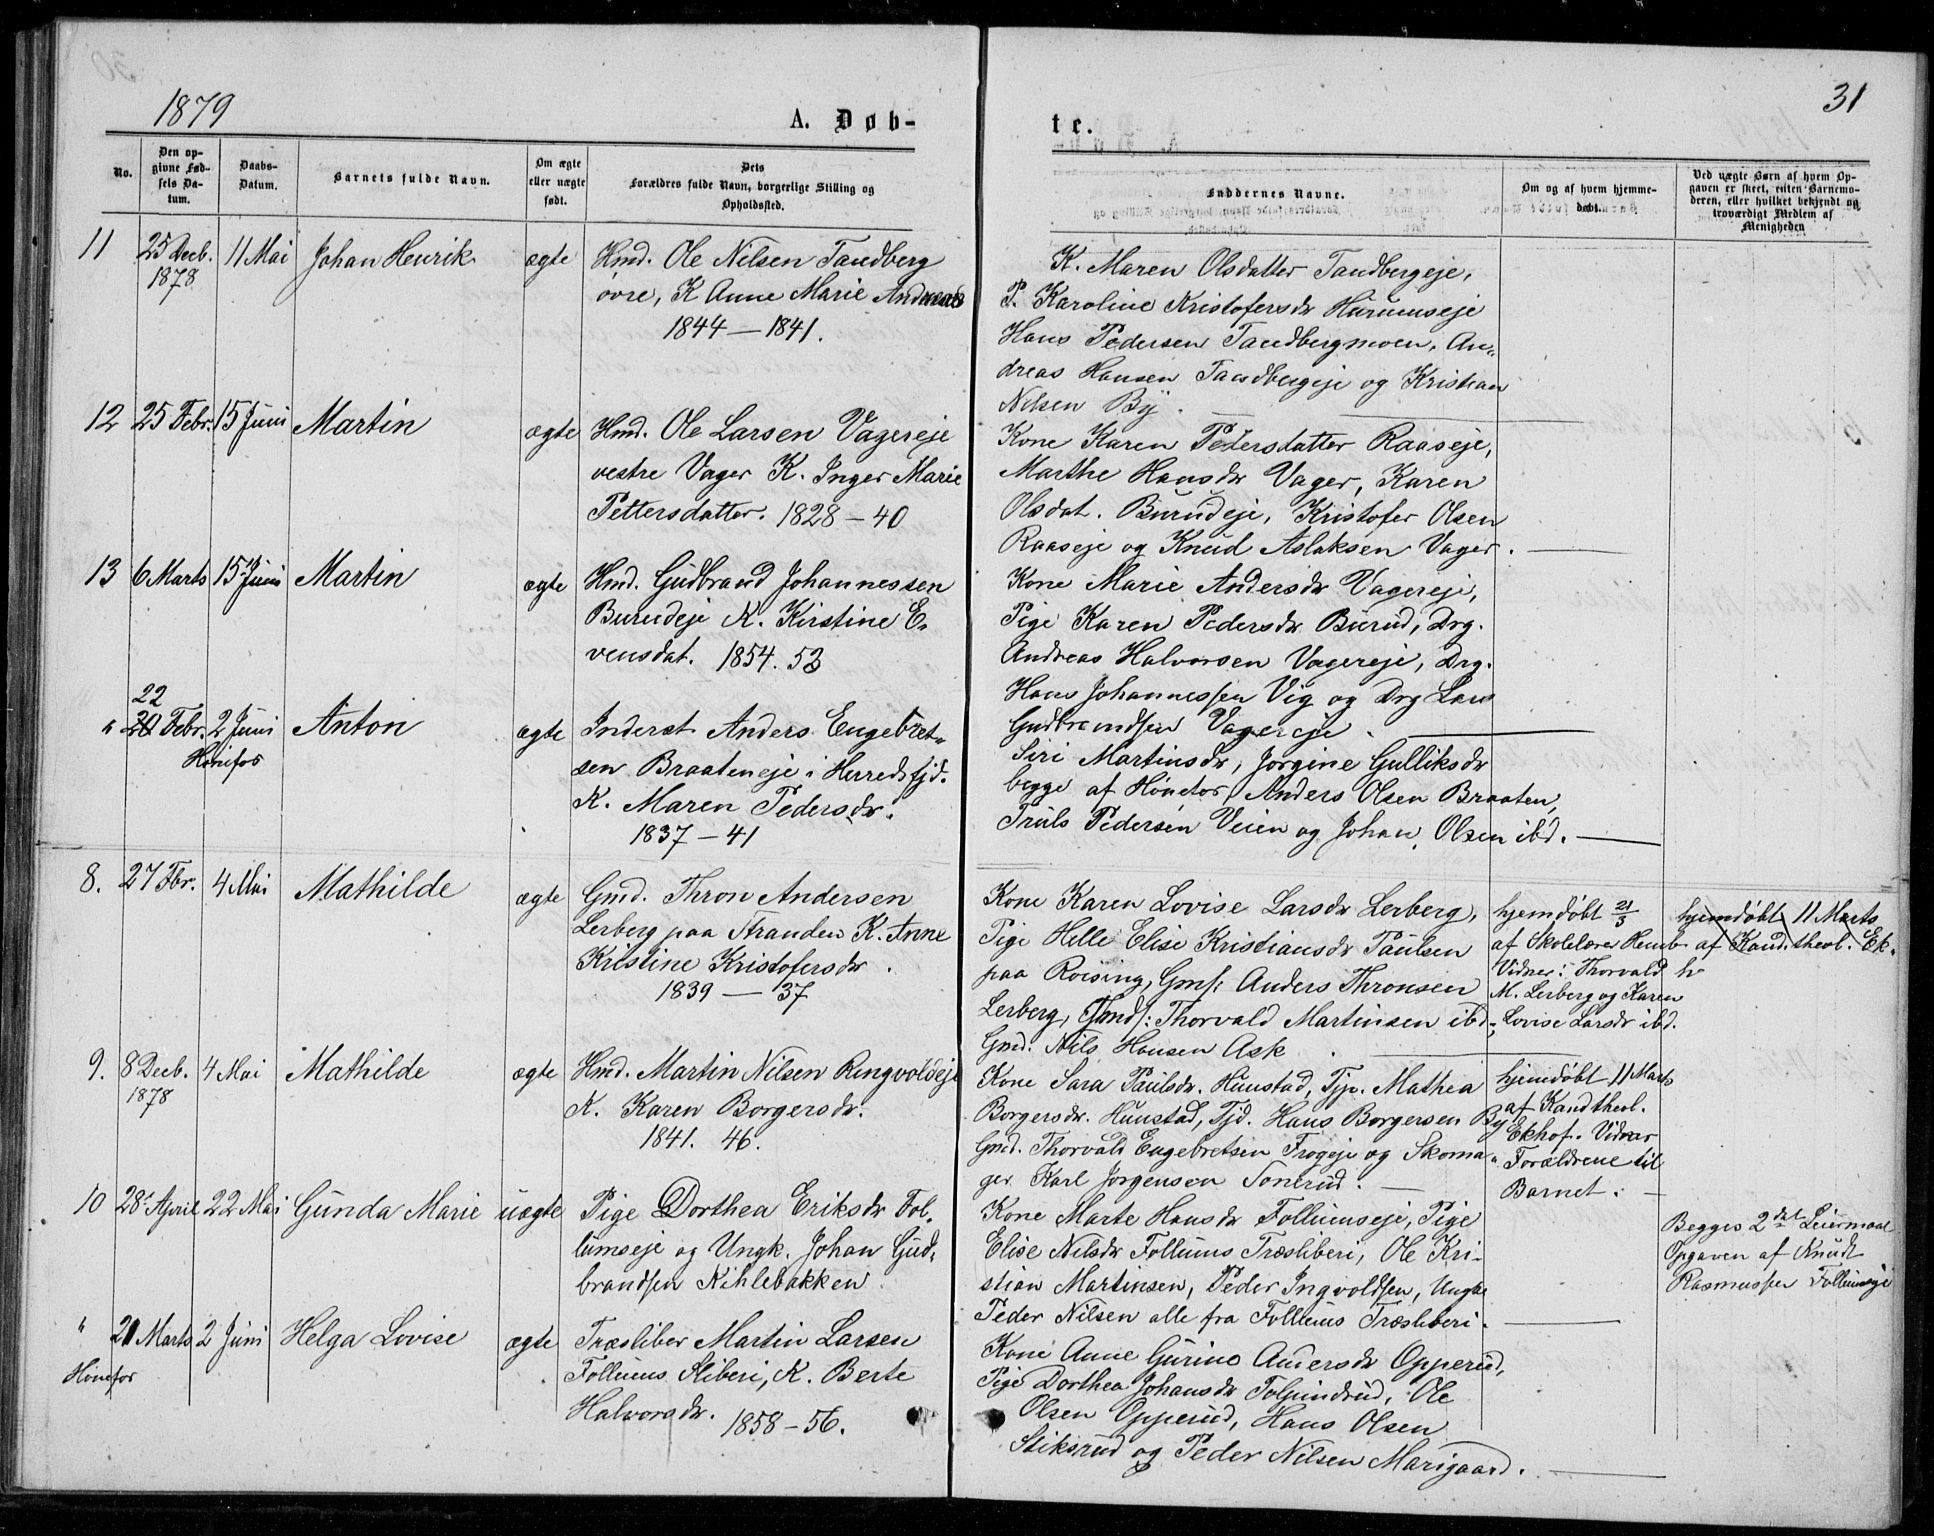 1879
A. Døb-
te.
31
No.
Den op-
givne Fød-
sels Da-
tum.
Daabs-
Datum.
Barnets fulde Navn.
Om ægte
eller uægte
født.
Dets
Forældres fulde Navn, borgerlige Stilling og
Opholdssted.
Faddernes Navne.
Om og af hvem hjemme-
døbt.
Ved uægte Børn af hvem Op-
gaven er skeet, enten Barnemo-
deren, eller hvilket bekjendt og
troværdigt Medlem af
Menigheden
11 25 Decb. 11 Mai Johan Henrik ægte Hmd. Ole Nilsen Tandberg
1878 øvre, K Anne Marie Andreasd
1844 — 1841.
K. Maren Olsdatter Tandbergeje,
P. Karoline Kristofersdr Hurumseje
Hans Pedersen Tandbergmoen, An-
dreas Hansen Tandbergeje og Kristian
Nilsen By.
12 25 Febr. 15 Juni Martin ægte Hmd. Ole Larsen Vagereje
vestre Vager K. Inger Marie
Pettersdatter. 1828 – 40
Kone Karen Pedersdatter Raaseje,
Marthe Hansdr Vager, Karen
Olsdat. Burudeje, Kristofer Olsen
Raaseje og Knud Aslaksen Vager.
13 6 Marts 15 Juni Martin ægte Hmd. Gudbrand Johannessen
Burudeje K. Kirstine E-
vensdat. 1854. 53
Kone Marie Andersdr Vagereje,
Pige Karen Pedersdr Burud, Drg.
Andreas Halvorsen Vagereje, Drg.
Hans Johannessen Vig og Drg Lars
Gudbrandsen Vagereje.
22
" 20 Febr. 2 Juni Anton ægte Inderst Anders Engebret-
Hønefos sen Braateneje i Herredsfjd.
K. Maren Pedersdr.
1837 – 41
Siri Martinsdr, Jørgine Gulliksdr
begge af Hønefos, Anders Olsen Braaten,
Truls Pedersen Veien og Johan Olsen ibd.
8. 27 Fbr. 4 Mai Mathilde ægte Gmd. Thron Andersen
Lerberg paa Stranden K. Anne
Kristine Kristofersdr.
1839 — 37
Kone Karen Lovise Larsdr Lerberg,
Pige Helle Elise Kristiansdr Paulsen
paa Roising, Gms: Anders Thronsen
Lerberg, Gmds: Thorvald Martinsen ibd.
Gmd. Nils Hansen Ask.
hjemdøbt 21/3
af Skolelærer Hemb
Vidner: Thorvald
M. Lerberg og Karen
Lovise Larsdr ibd.
hjemdøbt 11 Marts
af Kand. theol. Ek-
h
9. 8 Decb. 4 Mai Mathilde ægte Hmd. Martin Nilsen Ringvoldeje
1878 K. Karen Borgersdr.
1841. 46.
Kone Sara Paulsdr. Hunstad, Tjp. Mathea
Borgersdr. Hunstad, Tjd. Hans Borgersen By
Gmd. Thorvald Engebretsen Frogeje og Skoma-
ger Karl Jørgensen Sonerud.
hjemdøbt 11 Marts
af Kand theol.
Ekhof. Vidner
Forældrene til
Barnet.
10 28 April 22 Mai Gunda Marie uægte Pige Dorthea Eriksdr Fol-
lumseje og Ungk. Johan Gud-
brandsen Kihlebakken
Kone Marte Hansdr Follumseje, Pige
Elise Nilsdr Follums Træsliberi, Ole Kri-
stian Martinsen, Peder Ingvoldsen, Ungk
Peder Nilsen alle fra Follums Træsliberi.
Begges 2det Leiermaal
Opgaven af Knudt
Rasmussen Follumseje
" 21 Marts 2 Juni Helga Lovise ægte Træsliber Martin Larsen
Hønefos Follums Sliberi, K. Berte
Halvorsdr. 1858 – 56.
Kone Anne Gurine Andersdr Opperud,
Pige Dorthea Johansdr Tolpinrud, Ole
Olsen Opperud, Hans Olsen
Stiksrud og Peder Nilsen Marigaard.